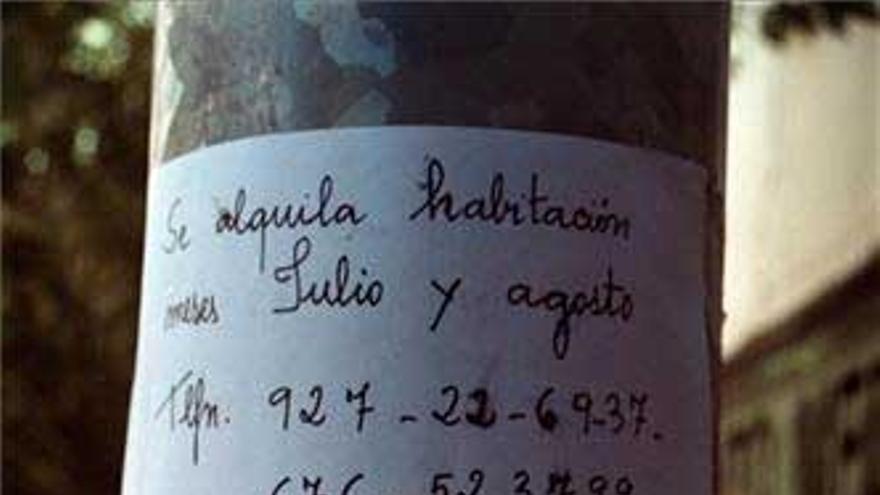 Se alquila habitación
meses Julio y agosto
Tlfn. 927-22-69-37.
676-523799